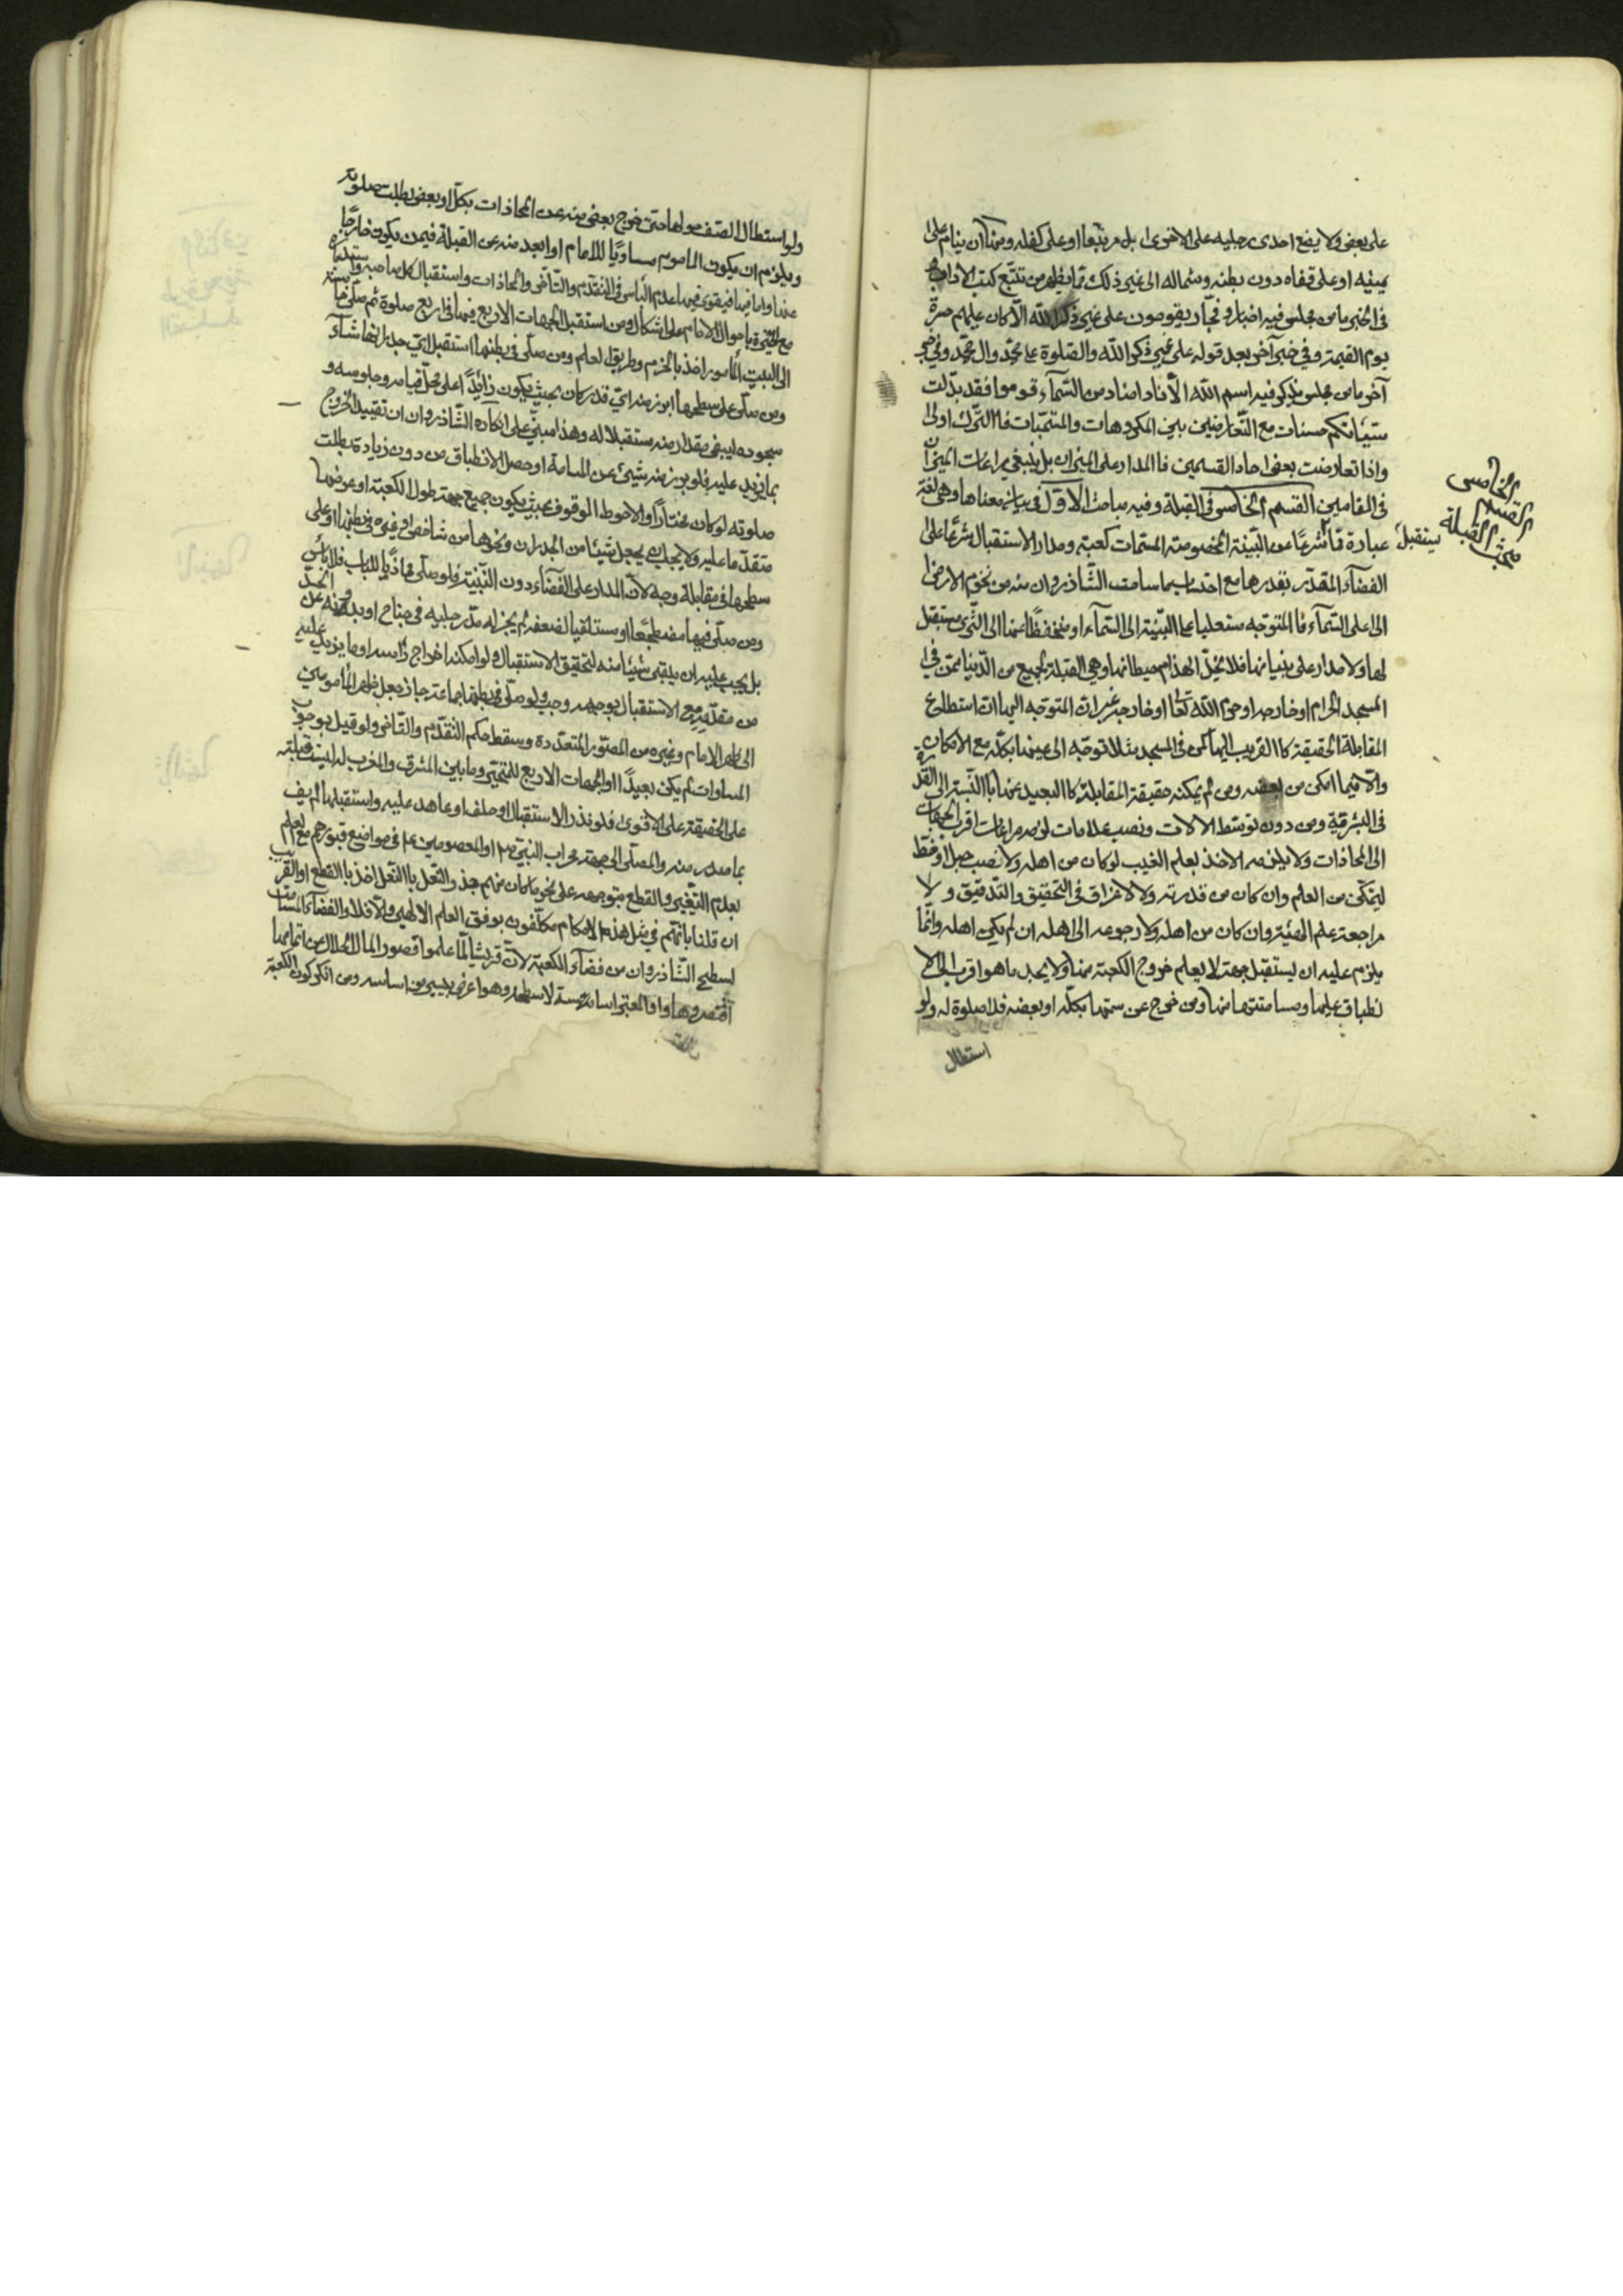 على بعض ولا يضع احدى رجليه على الاخرى بل مربّعا او على كفله ومنها ان ينام على
يمينه او على قفاه دون بطنه وشماله الى غير ذلك ممّا يظهر من تتبّع كتب الاداب
في الخبر ما من مجلس فيه ابرار وفجّار يقومون على غير ذكر الله الّا كان عليهم حسرة
يوم القيمة وفي خبر آخر بعد قوله على غير ذكر الله والصّلوة على محمّد وال محمّد وفي خبر
آخر ما من مجلس يذكر فيه اسم الله الّا نادا مناد من السّمآء قوموا فقد بدّلت
سيّئاتكم حسنات مع التّعارض بين المكروهات والمستحبّات فاالتّرك اولى
واذا تعارضت بعض احاد القسمين فاالمدار على الميزان بل ينبغي مراعات الميزان
في المقامين القسم الخامس في القبلة وفيه مباحث الاوّل في بيان معناها وهي لغة
عبارة عمّا يستقبل شرعًا عن البنيّة المخصوصة المسمّات كعبة ومدار الاستقبال شرعًا على
الفضآء المقدّر بقدرها مع احتساب ما سامت الشّاذروان منه من تخوم الارض
الى اعلى السّمآء فاالمتوجّه مستعليا على البنيّة الى السّمآء او منخفضًا عنها الى الثّرى مستقبل
لها ولا مدار على بنيانها فلا يخلّ انهدام حيطانها وهي القبلة لجميع من الدّنيا ممّن في
المسجد الحرام او خارجه او حرم الله تعالى او خارجه غير انّ المتوجّه اليها ان استطاع
المقابلة الحقيقة كاالقريب اليها كمن في المسجد مثلا توجّه الى عينها بكلّه مع الامكان
والّا فبما امكن من بعضه ومن لم يمكنه حقيقة المقابلة كاالبعيد عنها باالنّسبة الى القدرة
في البشرية ومن دون توسّط الالات ونصب علامات لزمه مراعات اقرب الجهات
الى المحاذات ولا يلزمه الاخذ بعلم الغيب لو كان من اهله ولا نصب حبل او خيط
ليتمكّن من العلم وان كان من قدرته ولا الاغراق في التحقيق والتّدقيق ولا
مراجعة علم الهيئة وان كان من اهله ولا رجوعه الى اهله ان لم يكن اهله وانّما
يلزم عليه ان يستقبل جهة لا يعلم خروج الكعبة منها ولا يجد ما هو اقرب الى الا
نطباق عليها ومسامتتها منها ومن خرج عن سمتها بكلّه او بعضه فلا صلوة له ولو
استطال
القسم الخامس
مبحث القبلة
يستقبل
ولو استطال الصّف حولها حتى خرج بعض منه عن المحاذات بكلّ او بعض بطلت صلوته
ويلزم ان يكون الماموم مساويًا للامام او ابعد منه عن القبلة فيمن يكون خارجًا
عنها وامّا فيها فيقوى فيها عدم الباس في التقدّم والتّاخّر والمحاذات واستقبال كل صاحبه واستدباره
مع الخبرة باحوال الامام على اشكال ومن استقبل الجهات الاربع فيها في اربع صلوة ثم صلّى خامسة
الى البيت المأمور اخذ بالحزم وطريق العلم ومن صلّى في بطنها استقبل ايّ جدرانها شآء
ومن صلّى على سطحها ابرز منه ايّ قدر كان بحيث يكون زائدًا على محلّ قيامه وجلوسه و
سجوده ليبقى مقدار منه مستقبلا له وهذا مبنيّ على ان
بما يزيد عليه فلو برز منه شيئ عن المسامة او حصل الانطباق من دون زيادة بطلت
صلوته لو كان مختارًا والاحوط الوقوف بحيث يكون جميع جهة طول الكعبة او عرضها
متقدّما عليه ولا يجب ان يجعل شيئا من الجدران ونحوها من شاخص او غيره في بطنها او على
سطحها في مقابلة وجه لانّ المدار على الفضآء دون البنيّة فلو صلّى محاذيا للباب فلا بأس
ومن صلّى فيها مضطجعًا او مستلقيا لضعف لم يجز له مدّ رجليه في جناح او بدنه عن
بل يجب عليه ان يبقى شيئا منه لتحقيق الاستقبال ولو امكنه اخراج رأسه او ما يزيد عليه
من مقدّمه مع الاستقبال بوجهه وجب ولو صلّى في بطنها جماعة جاز جعل ظهر المأمومين
الى ظهر الامام وغيره من الصّور المتعدّدة ويسقط حكم التقدّم والتّاخّر ولو قيل بوجوب
المساوات لم يكن بعيدًا والجهات الاربع للمتحيّر وما بين المشرق والمغرب له ليست قبلة
على الحقيقة على الاقوى فلو نذر الاستقبال او حلف او عاهد عليه واستقبلها لم يف
بما صدر منه والمصلّى الى جهة محراب النبيّ ص او المعصومين ع في مواضع قبورهم مع العلم
بعدم التّغيير والقطع متوجهه على نحو ما كان منهم
ان قلنا بانّهم في مثل هذه الاحكام مكلّفون بوفق العلم الالهي والّا فلا والفضآء المسامت
لسطح الشّاذروان من فضآء الكعبة لانّ قريشا لمّا علموا قصور المال الحلال عن اتمامها
اقتصروها والمعتبر اساسه لا سطحه وهو اعرض بيسير من اساسه ومن انكر كون الكعبة